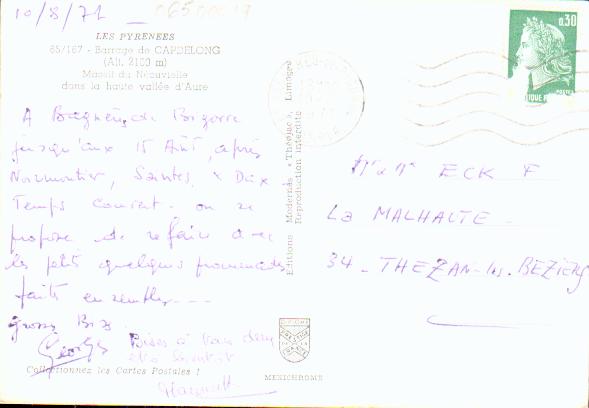 10/8/71
LES PYRENEES
65/167 - Barrage de CAPDELONG
(Alt. 2100 m)
Massif du Néouvielle
dans la haute vallée d'Aure
A Bagnères de Bigorre
jusqu'aux 15 Août, après
Noirmoutier, Saintes, & Dax
Temps couvert - on se
propose de refaire avec
les petits quelques promenades
faites ensemble ---
Gross Bis
Georges
Bises à vous deux
et à bientôt
Collectionnez les Cartes Postales !
Editions Modernes « Théojac », Limoges
Reproduction interdite
MEXICHROME
0,30
POSTES
Mr & Me ECK F
La MALHAUTE
34 - THEZAN-les-BEZIERS